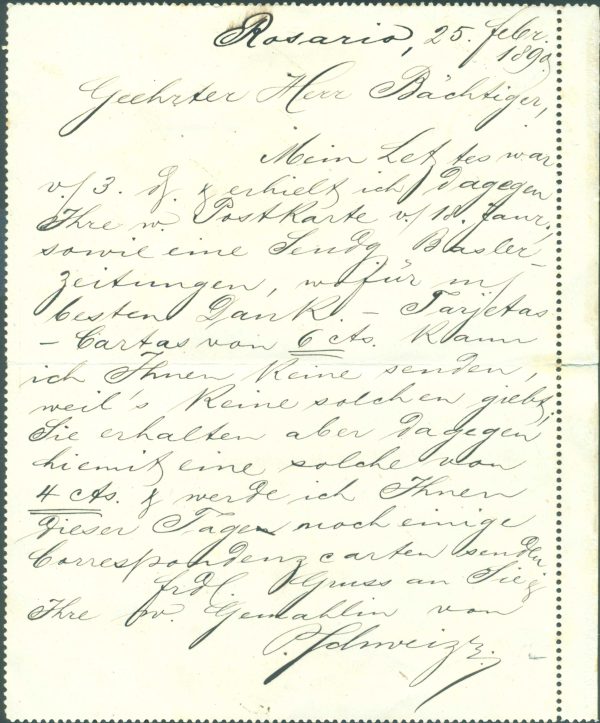 Rosario, 25. febr.
1890
Geehrter Herr Bächtiger,
Mein Letztes war
v/ 3. d. & erhielt ich dagegen
Ihre w. Postkarte v. 18. Janr.,
sowie eine Sendg Basler-
zeitungen, wofür m/
besten Dank. – Tarjetas
– Cartas von 6 cts. kann
ich Ihnen keine senden,
weil's keine solchen giebt;
Sie erhalten aber dagegen
hiemit eine solche von
4 cts. & werde ich Ihnen
dieser Tage noch einige
Correspondenzcarten senden
frdl. Gruss an Sie &
Ihre w. Gemahlin von
P. Schweizer. –